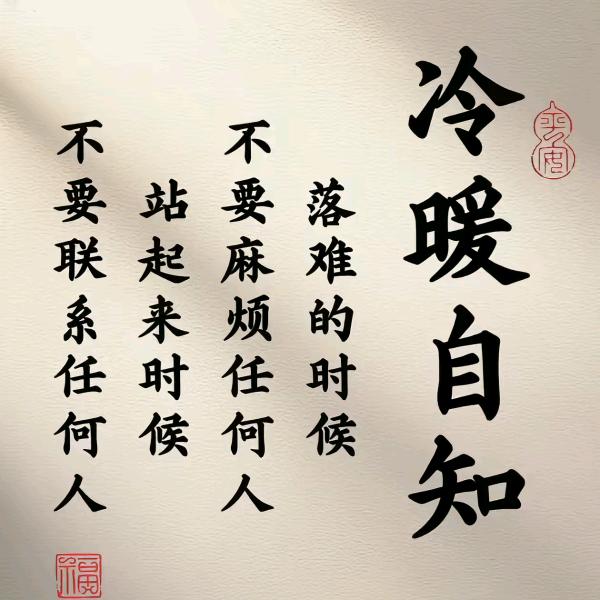 冷暖自知
平安
落难的时候
不要麻烦任何人
站起来时候
不要联系任何人
福